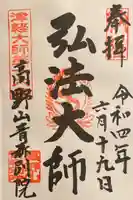 奉拝
令和四年
六月十九日
弘法大師
津軽大師
高野山青森別院